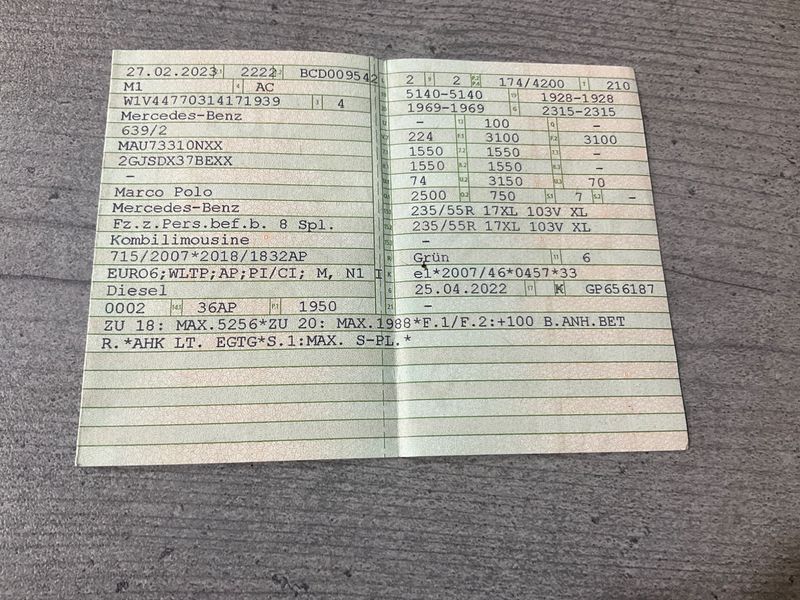 27.02.2023 2222 BCD009542
M1 4 AC
W1V44770314171939 3 4
Mercedes-Benz
639/2
MAU73310NXX
2GJSDX37BEXX
–
Marco Polo
Mercedes-Benz
Fz.z.Pers.bef.b. 8 Spl.
Kombilimousine
715/2007*2018/1832AP
EURO6;WLTP;AP;PI/CI; M, N1 I
Diesel
0002 36AP P.1 1950
2 9 2 174/4200 T 210
5140-5140 1928-1928
1969-1969 G 2315-2315
– 100 –
224 3100 3100
1550 1550 –
1550 1550 –
74 3150 70
2500 750 S.1 7 S.2 –
235/55R 17XL 103V XL
235/55R 17XL 103V XL
–
R Grün 11 6
K e1*2007/46*0457*33
6 25.04.2022 17 K GP656187
21 –
ZU 18: MAX.5256*ZU 20: MAX.1988*F.1/F.2:+100 B.ANH.BET
R.*AHK LT. EGTG*S.1:MAX. S-PL.*